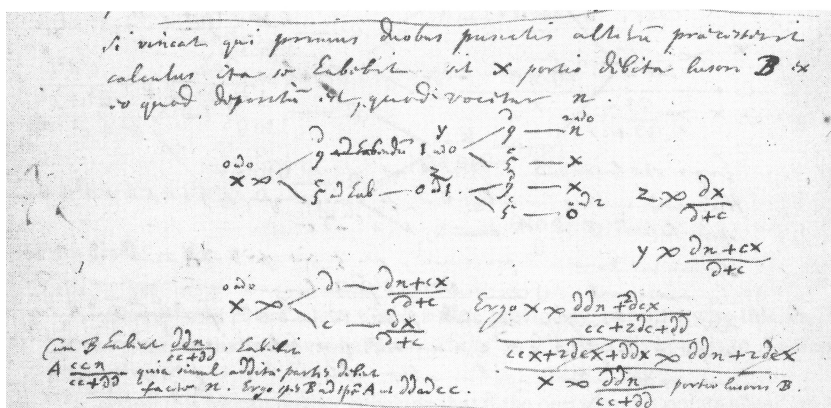 Si vincat qui primus duobus punctis alterū præcesserit
calculus ita se habebit. sit x portio debita lusori B ex
eo quod depositū est, quod vocetur n.
∂ y ∂ 2 ad 0
0 ad 0 9 ad habendū 1 ad 0 9 — n
x ∞ c 5 — x
5 ad hab — 0 ad 1 ∂ 9 — x
c 5 — 0 0 ad 2
z ∞ ∂x/∂+c
y ∞ ∂n+cx/∂+c
0 ad 0
x ∞ ∂ — ∂n+cx/∂+c
c — ∂x/∂+c
Ergo x ∞ ∂∂n+2∂cx/cc+2∂c+∂∂
ccx+2∂cx+∂∂x ∞ ∂∂n+2∂cx
x ∞ ∂∂n/cc+∂∂ portio lusoris B.
Cum B habeat ∂∂n/cc+∂∂. habebit
A ccn/cc+∂∂ quia simul additæ partes debent
facere n. Ergo spes B ad spē A ut ∂∂ ad cc.